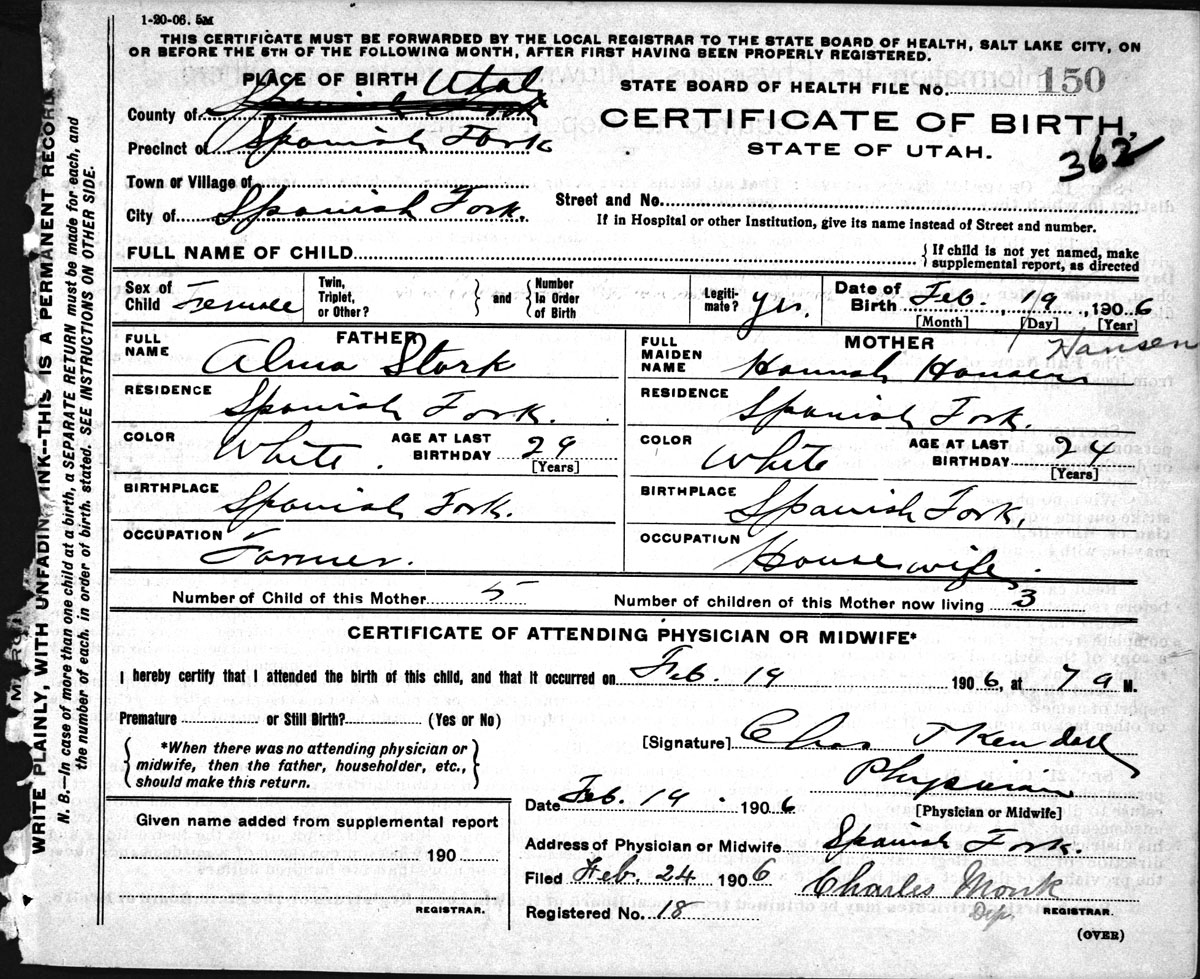 1-20-06. 5M
THIS CERTIFICATE MUST BE FORWARDED BY THE LOCAL REGISTRAR TO THE STATE BOARD OF HEALTH, SALT LAKE CITY, ON
OR BEFORE THE 5TH OF THE FOLLOWING MONTH, AFTER FIRST HAVING BEEN PROPERLY REGISTERED.
PLACE OF BIRTH Utah
STATE BOARD OF HEALTH FILE NO. 150
County of Spanish Fork
CERTIFICATE OF BIRTH,
Precinct of Spanish Fork
STATE OF UTAH.
362
Town or Village of
Street and No.
City of Spanish Fork.
If in Hospital or other Institution, give its name instead of Street and number.
FULL NAME OF CHILD
{If child is not yet named, make
supplemental report, as directed
Sex of Child Female
Twin, Triplet, or Other?
} and {
Number In Order of Birth
Legiti-mate? yes.
Date of Birth Feb. , 19 ., 1906
[Month] [Day] [Year]
FATHER
MOTHER
Hansen
FULL NAME Alma Stork
FULL MAIDEN NAME Hannah Hansen
RESIDENCE Spanish Fork.
RESIDENCE Spanish Fork.
COLOR White. AGE AT LAST BIRTHDAY 29 [Years]
COLOR White AGE AT LAST BIRTHDAY 24 [Years]
BIRTHPLACE Spanish Fork.
BIRTHPLACE Spanish Fork,
OCCUPATION Farmer.
OCCUPATION Housewife.
Number of Child of this Mother 5
Number of children of this Mother now living 3
CERTIFICATE OF ATTENDING PHYSICIAN OR MIDWIFE*
I hereby certify that I attended the birth of this child, and that it occurred on Feb. 19 1906, at 7 a M.
Premature or Still Birth? (Yes or No)
{ *When there was no attending physician or
midwife, then the father, householder, etc.,
should make this return. }
[Signature] Chas T Kendall
Physician
[Physician or Midwife]
Date Feb. 19. 1906
Given name added from supplemental report
190
REGISTRAR.
Address of Physician or Midwife Spanish Fork.
Filed Feb. 24 1906
Charles Monk
Registered No. 18
Dep. REGISTRAR.
(OVER)
WRITE PLAINLY, WITH UNFADING INK--THIS IS A PERMANENT RECORD
N. B.—In case of more than one child at a birth, a SEPARATE RETURN must be made for each, and
the number of each, in order of birth, stated. SEE INSTRUCTIONS ON OTHER SIDE.